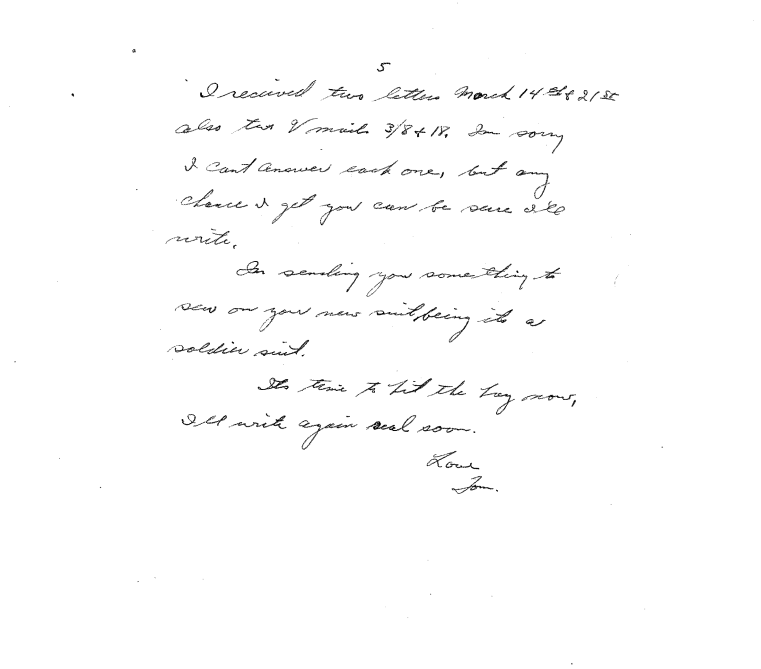 5
I received two letters March 14th & 21st
also two V mails 3/8 & 18. Im sorry
I cant answer each one, but any
chance I get you can be sure I'll
write.
Im sending you something to
sew on your new suit, being its a
soldier suit.
Its time to hit the hay now,
I'll write again real soon.
Love
Tom.